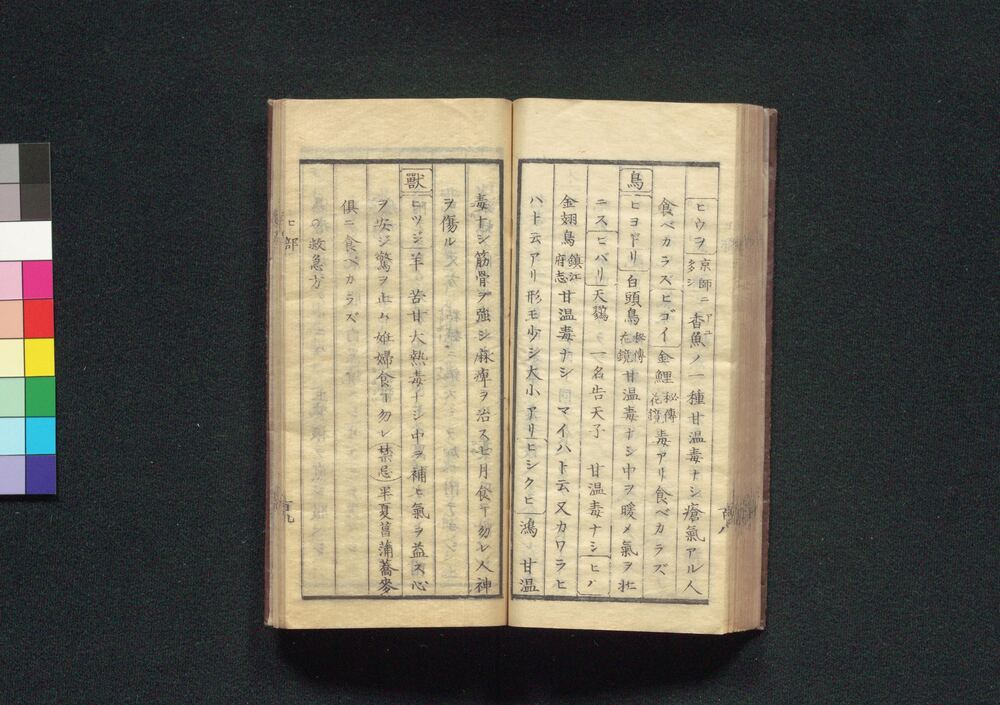 ヒウヲ 京師ニ多シ 香魚ノ一種甘温毒ナシ瘡氣アル人
アユ
食ベカラズ ヒゴイ 金鯉 秘傳花鏡 毒アリ食ベカラズ
鳥
ヒヨドリ 白頭鳥 秘傳花鏡 甘温毒ナシ中ヲ暖メ氣ヲ壮
ニス ヒバリ 天鷚 一名告天子 甘温毒ナシ ヒハ
金翅鳥 鎮江府志 甘温毒ナシ マイハト云又カワラヒ
ハト云アリ形モ少シ大小アリ ヒシクヒ 鴻 甘温
百八
毒ナシ筋骨ヲ強シ麻痺ヲ治ス七月食フ勿レ人神
ヲ傷ル
獸
ヒツジ 羊 苦甘大熱毒ナシ中ヲ補ヒ氣ヲ益ス心
ヲ安ジ驚ヲ止ム 妊婦食フ勿レ 禁忌 半夏菖蒲蕎麥
俱ニ食ベカラズ
ヒ部
の救急方
百九